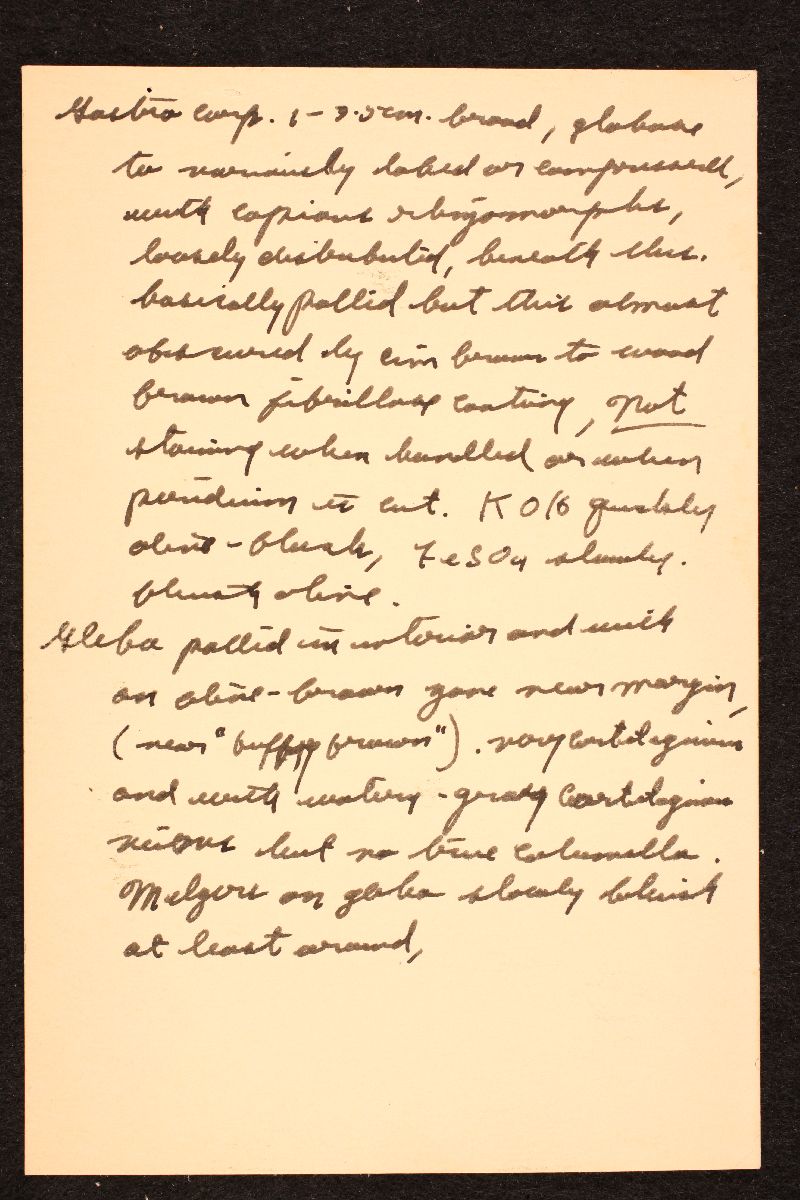 Gastro carp. 1-3.5 cm. broad, globose
to variously lobed or compressed,
with copious rhizomorphs,
loosely distributed, beneath this.
basically pallid but this almost
obscured by cin brown to wood
brown fibrillose coating, not
staining when handled or when
peridium is cut. KOH quickly
olive-black, FeSO4 slowly.
bluish olive.
Gleba pallid in interior and with
an olive-brown zone near margin,
(near "buffy brown"). very cartilaginous
and with watery-gray cartilaginous
veins but no true columella.
Melzers on gleba slowly bluish
at least around,